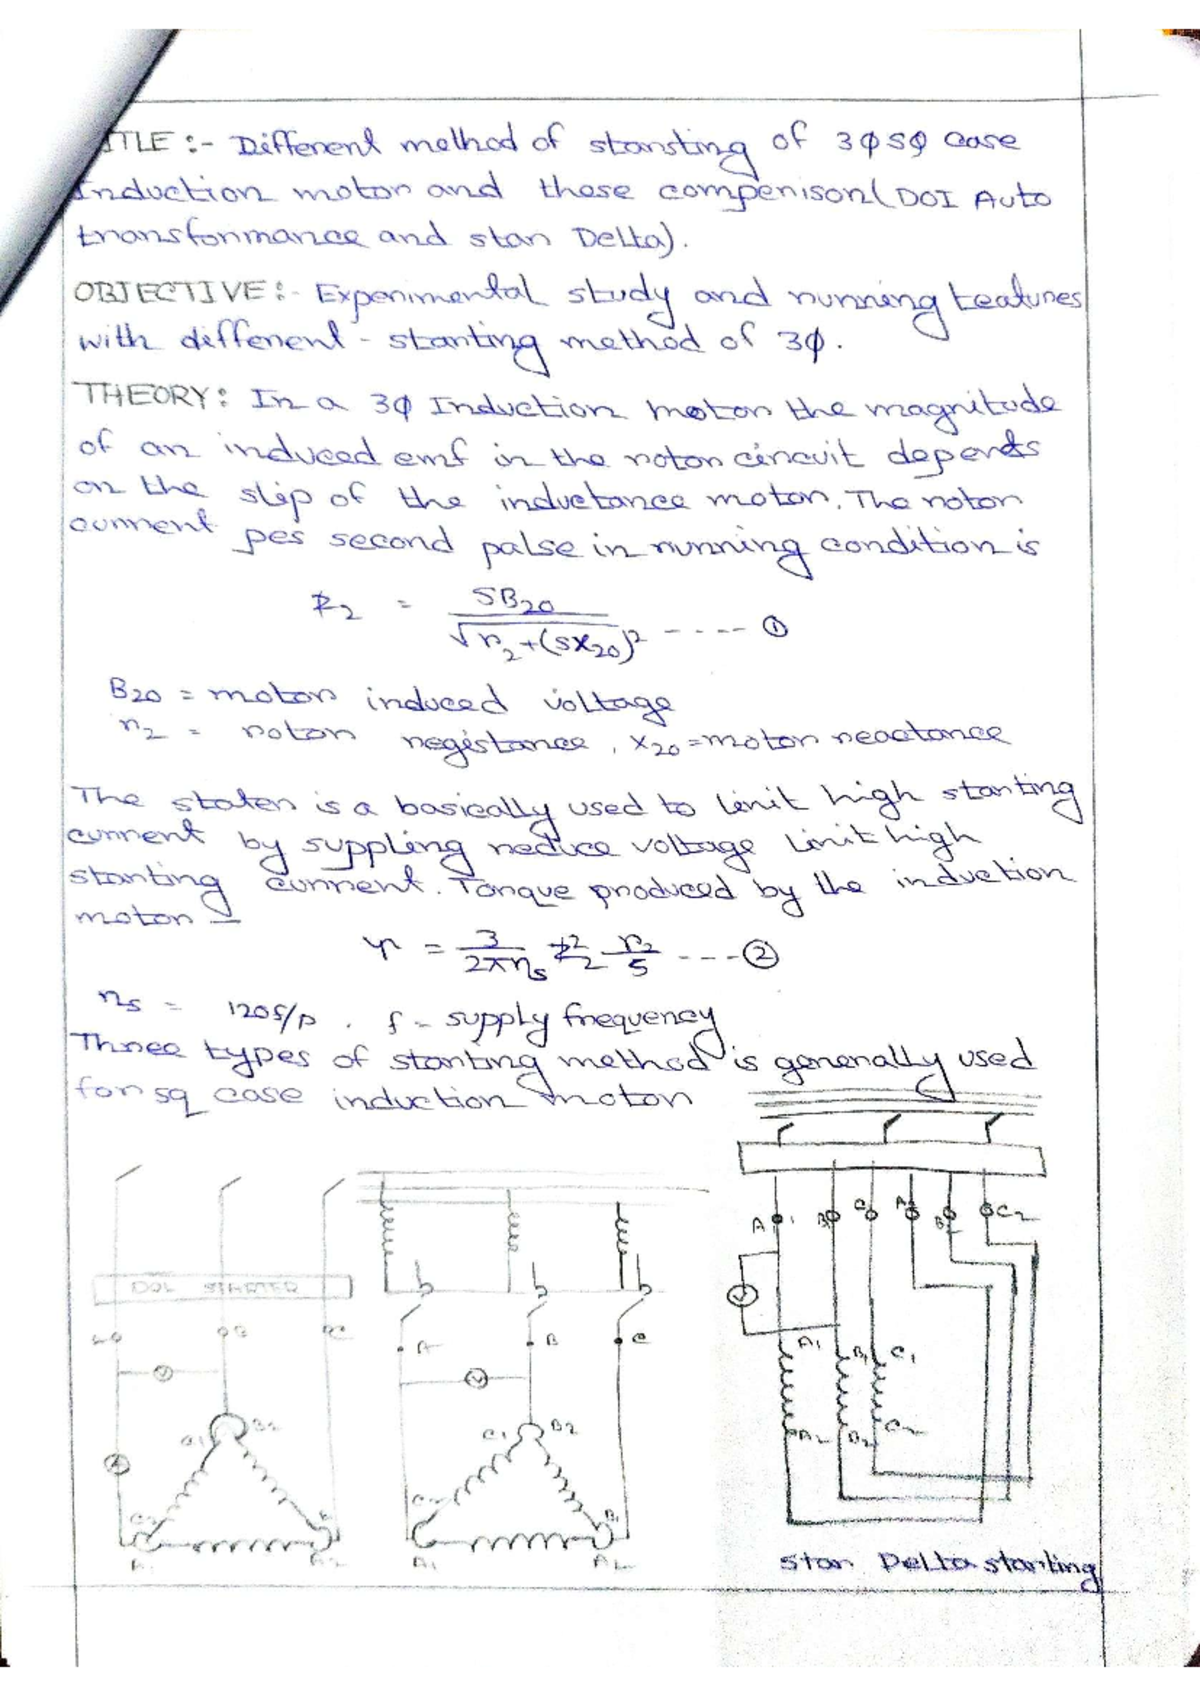 TITLE :- Different method of starsting of 3φ sq case
Induction motor and these compenison (DOI Auto
transformance and star Delta).
OBJECTIVE :- Experimental study and running teatures
with different - starting method of 3φ.
THEORY: In a 3φ Induction motor the magnitude
of an induced emf in the rotor circuit depends
on the slip of the inductance motor. The rotor
current pes second palse in running condition is
I2 = SB20 / √r2+(sx20)2 ---- ①
B20 = motor induced voltage
r2 = rotor registance, x20 = motor reactance
The stater is a basically used to limit high starting
current by suppling reduce voltage limit high
starting current. Torque produced by the induction
motor =
= 3/2πns I22 r2/s ---- ②
ns = 120f/p . f - supply frequency
Three types of starting method is generally used
for sq case induction motor
DOL STARTER
A B C
V
A
B2
C2
A1 A2
A B C
V
C1 B2
C2 B1
A1 A2
A1 B1 C1 A2 B2 C2
V
A1 B1 C1
A2 B2 C2
Star Delta starting